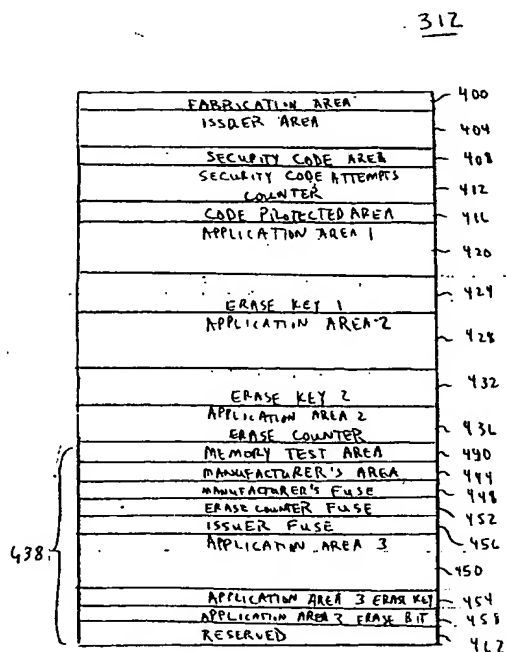 312
FABRICATION AREA 400
ISSUER AREA 404
SECURITY CODE AREA 408
SECURITY CODE ATTEMPTS
COUNTER 412
CODE PROTECTED AREA 416
APPLICATION AREA 1 420
ERASE KEY 1 424
APPLICATION AREA 2 428
ERASE KEY 2 432
APPLICATION AREA 2
ERASE COUNTER 436
MEMORY TEST AREA 440
MANUFACTURER'S AREA 444
MANUFACTURER'S FUSE 448
ERASE COUNTER FUSE 452
ISSUER FUSE 456
APPLICATION AREA 3
438
450
APPLICATION AREA 3 ERASE KEY 454
APPLICATION AREA 3 ERASE BIT 458
RESERVED 462